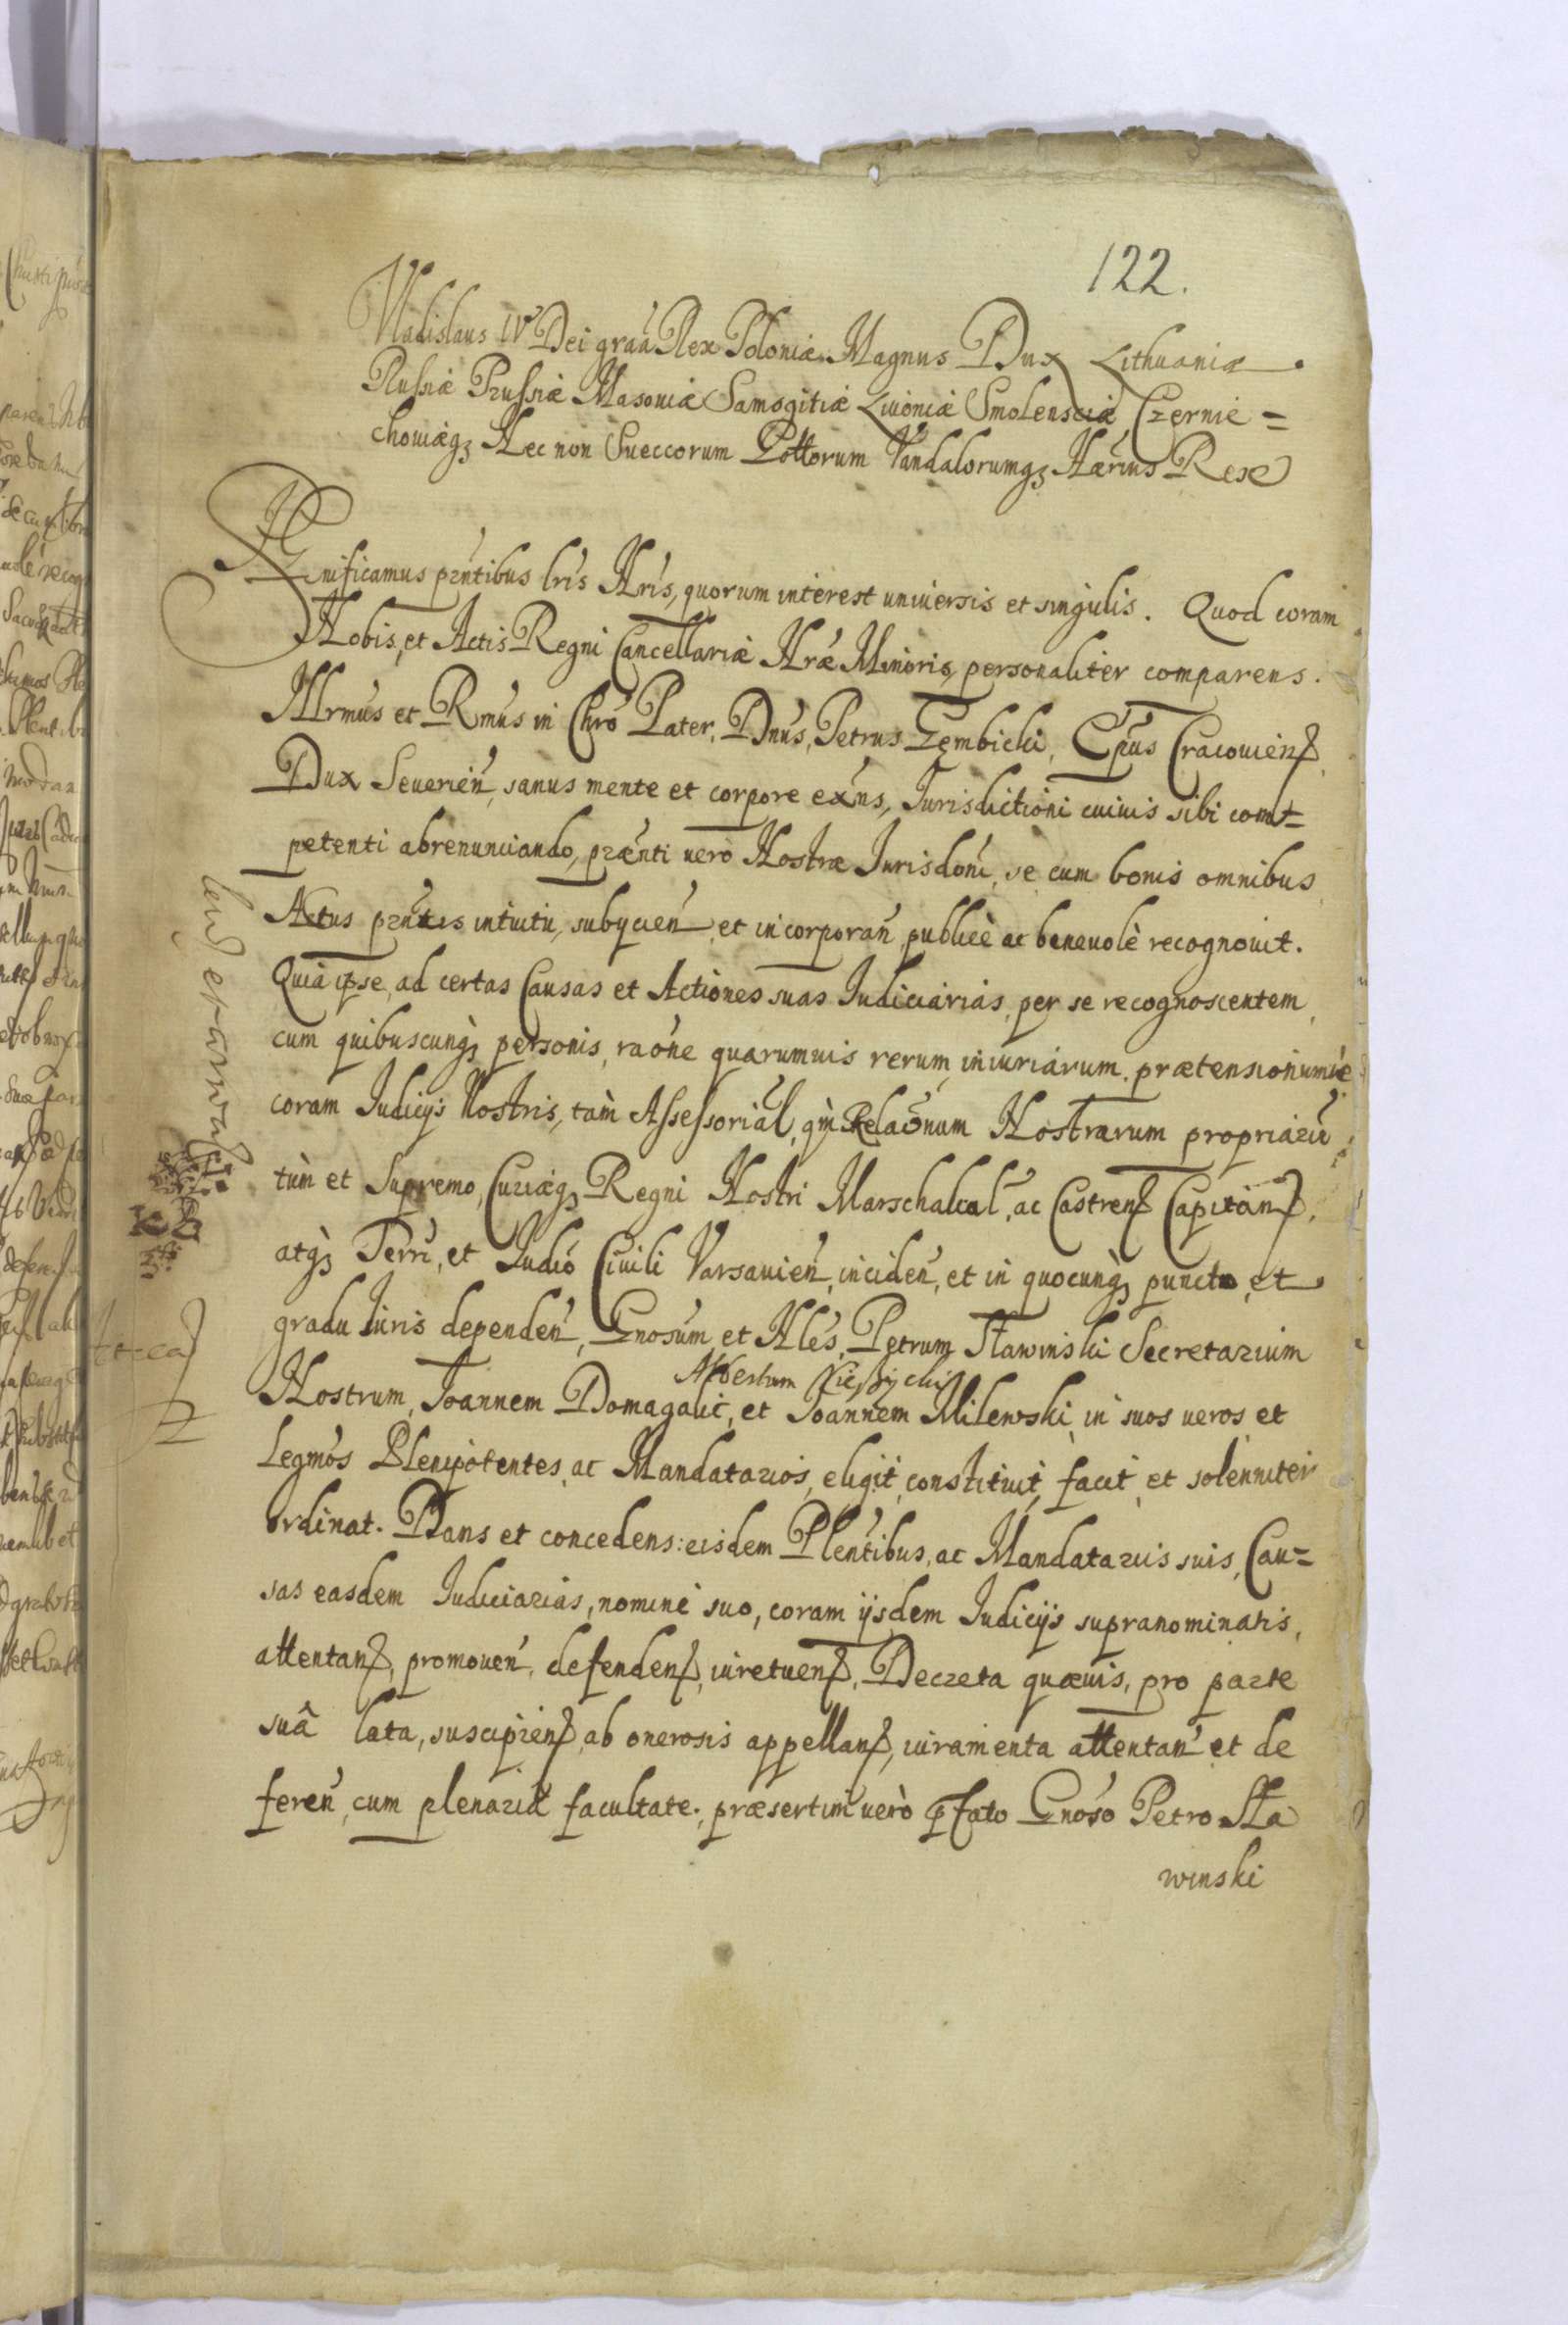 122.
Vladislaus IV Dei graã Rex Poloniæ Magnus Dux Lithuaniæ
Russiæ Prussiæ Masoviæ Samogitiæ Livoniæ Smolensciæ Czernie=
choviæqz Nec non Sueccorum Gottorum Vandalorumqz Hærius Rex
Significamus prntibus lris Nris, quorum interest universis et singulis. Quod coram
Nobis, et Actis Regni Cancellariæ Nræ Minoris, personaliter comparens.
Illrmus et Rmus in Chro Pater, Dnus, Petrus Gembicki, Epus Cracovien
Dux Severien, sanus mente et corpore exns, Jurisdictioni cuivis sibi com=
petenti abrenunciando, præsnti vero Nostræ Jurisdoni, se cum bonis omnibus
Actus prntis intuitu, subycien et incorporan publicè ac benevolè recognovit.
Quia ipse, ad certas Causas et Actiones suas Judiciarias, per se recognoscentem,
cum quibuscunqz personis, raone quarumvis rerum, iniuriarum, prætensionumve
coram Judicys Nostris, tàm Assessorial, qm Relaonum Nostrarum propriaru
tùm et Supremo, Curiæqz Regni Nostri Marschalcal, ac Castren Capitan,
atqz Terri, et Judio Civili Varsavien, inciden, et in quocunqz puncto, et
gradu Iuris dependen, Gnosum et Nles, Petrum Stawinski Secretarium
Albertum
Nostrum, Joannem Domagalic, et Joannem Milewski, in suos veros et
Legmos Plenipotentes, ac Mandatarios, eligit, constituit, facit, et solenniter
ordinat. Dans et concedens: eisdem Plentibus, ac Mandatariis suis, Cau=
sas easdem Judiciarias, nomine suo, coram ysdem Judicys supranominatis,
attentan, promoven, defenden, Decreta quævis, pro parte
suâ lata, suscipien, ab onerosis appellan, iuramenta attentan et de
feren, cum plenariâ facultate, præsertim verò pfato Gnoso Petro Sta
winski